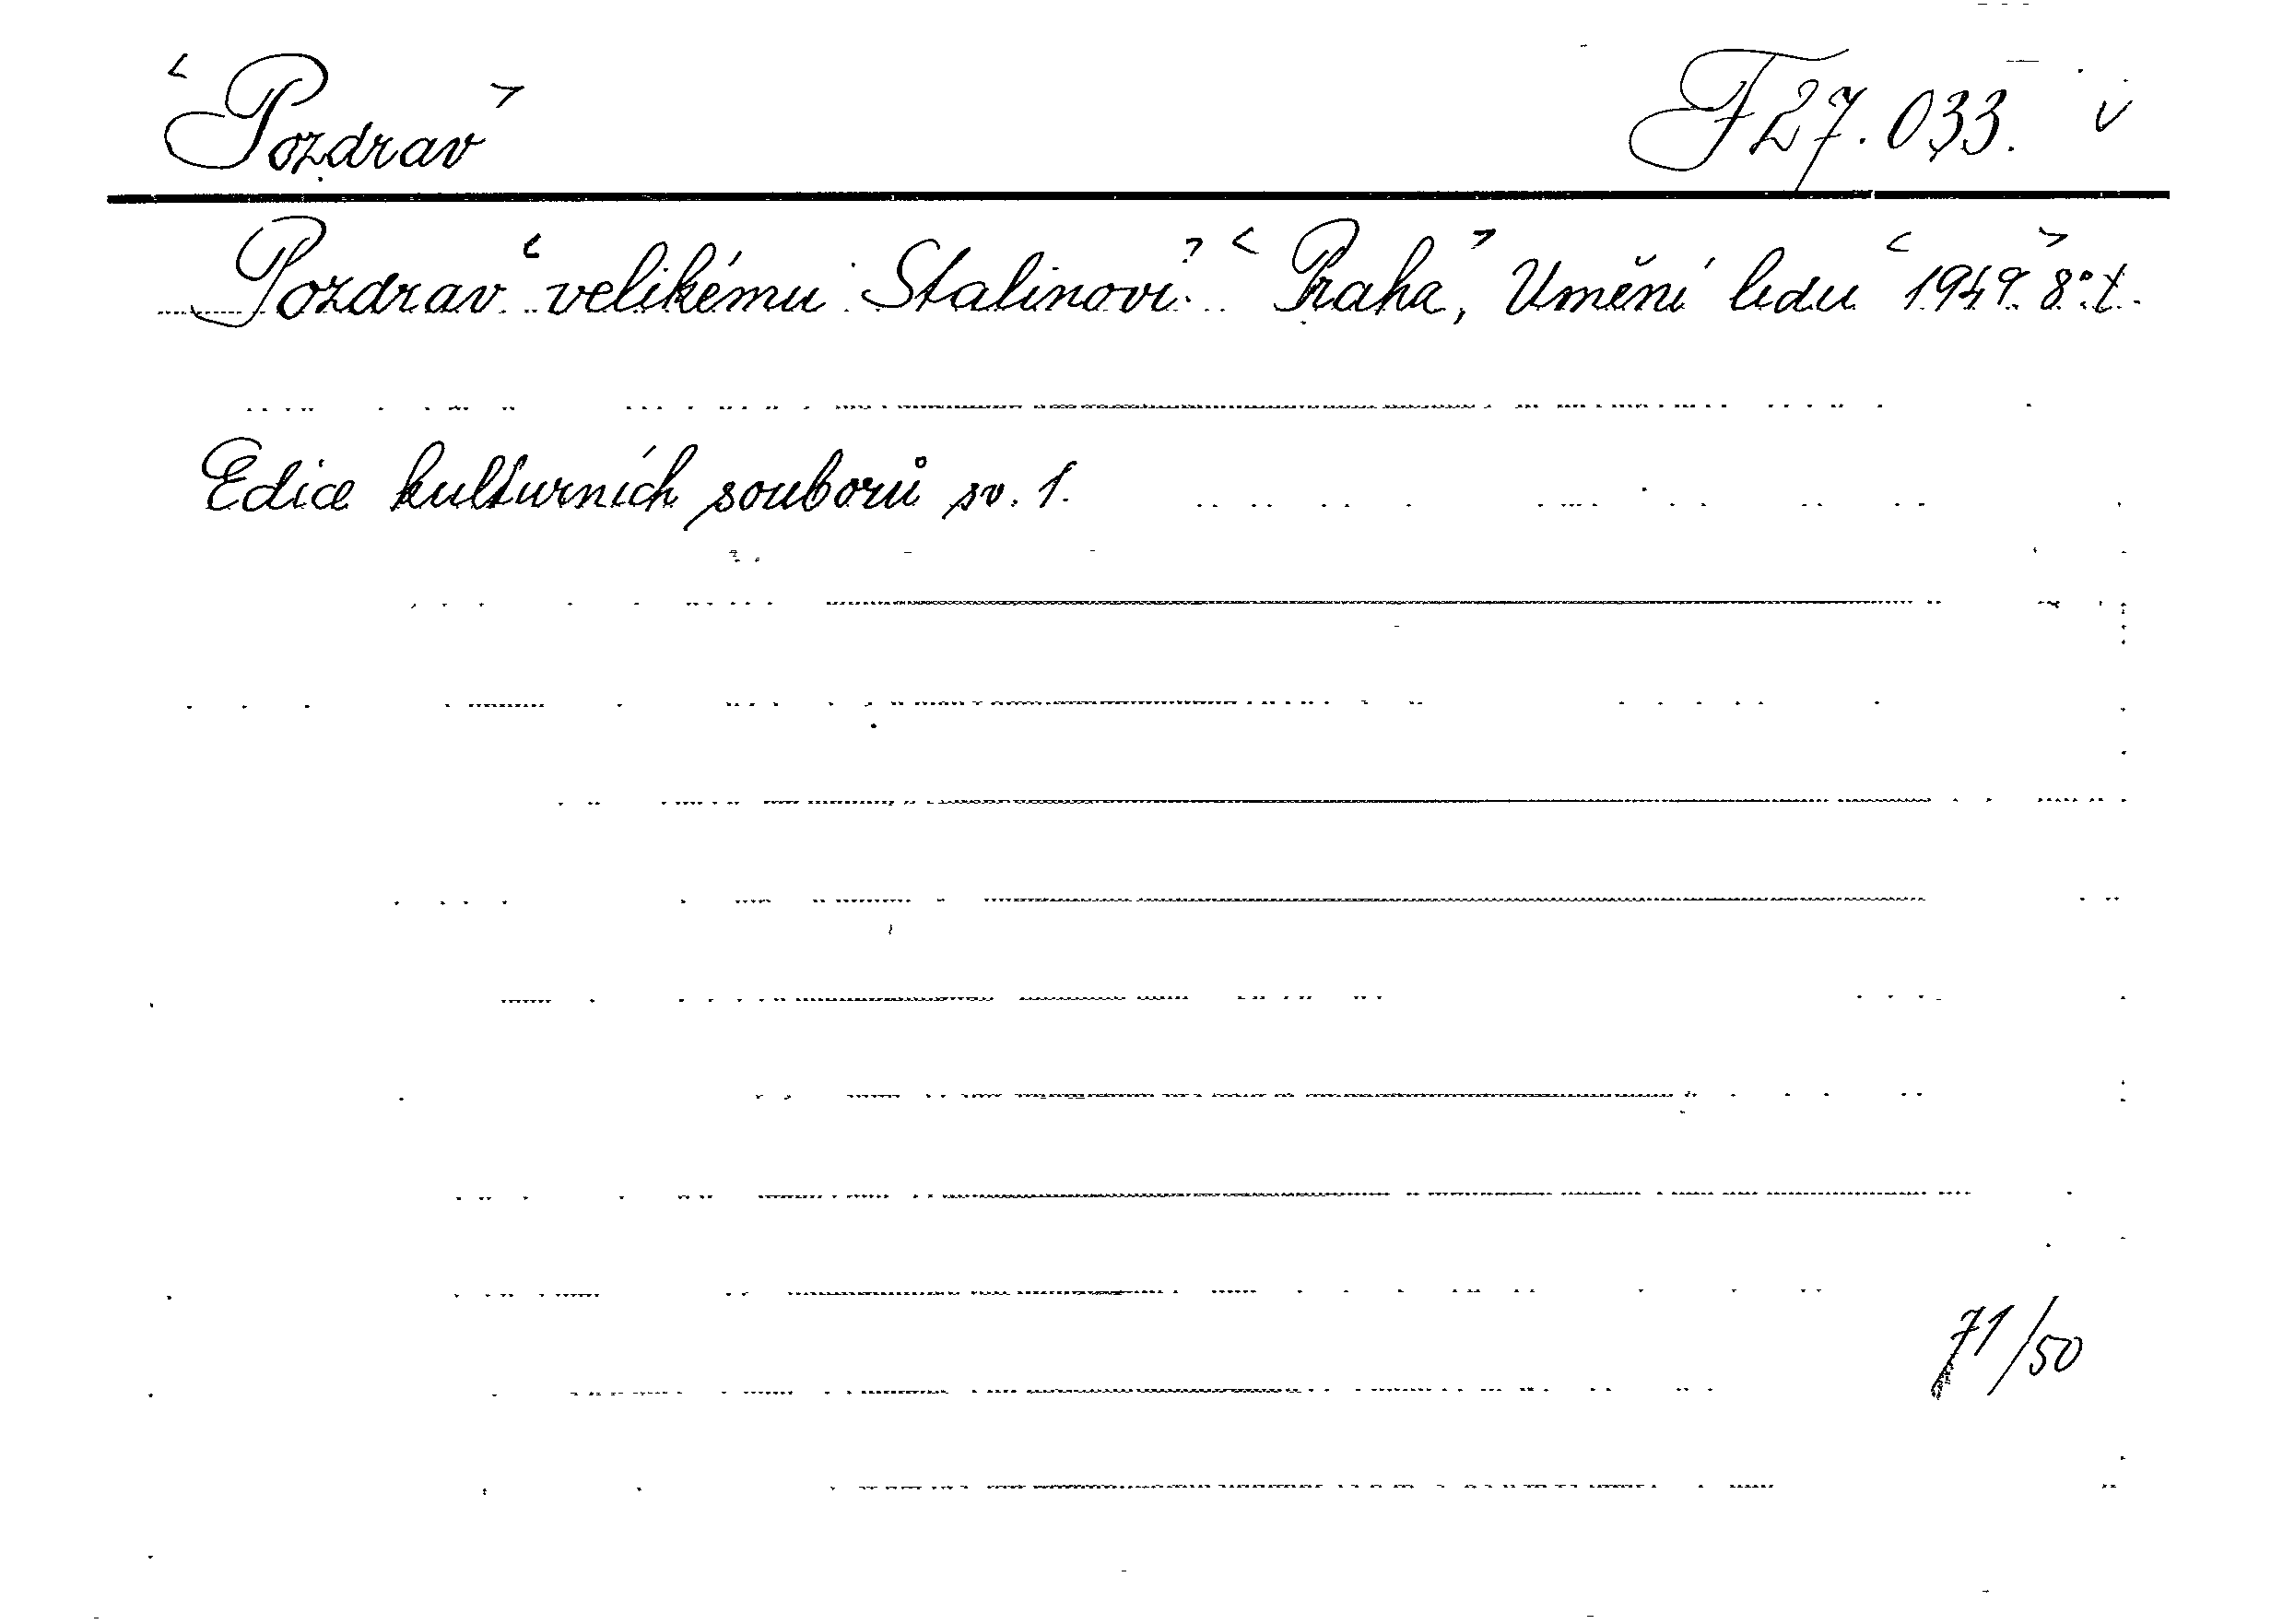 Pozdrav F 27.033. v
Pozdrav velikému Stalinovi. Praha, Umění lidu 1949. 8°. t.
Edice kulturních souborů sv. 1.
71/50